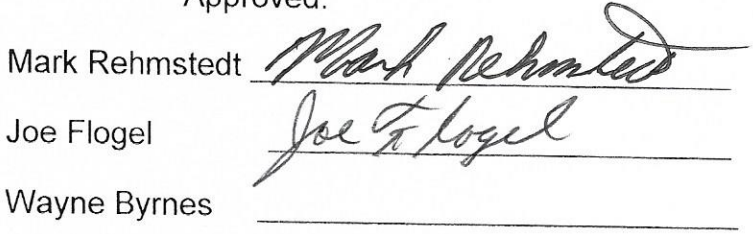 Approved:
Mark Rehmstedt Mark Rehmstedt
Joe Flogel Joe Flogel
Wayne Byrnes